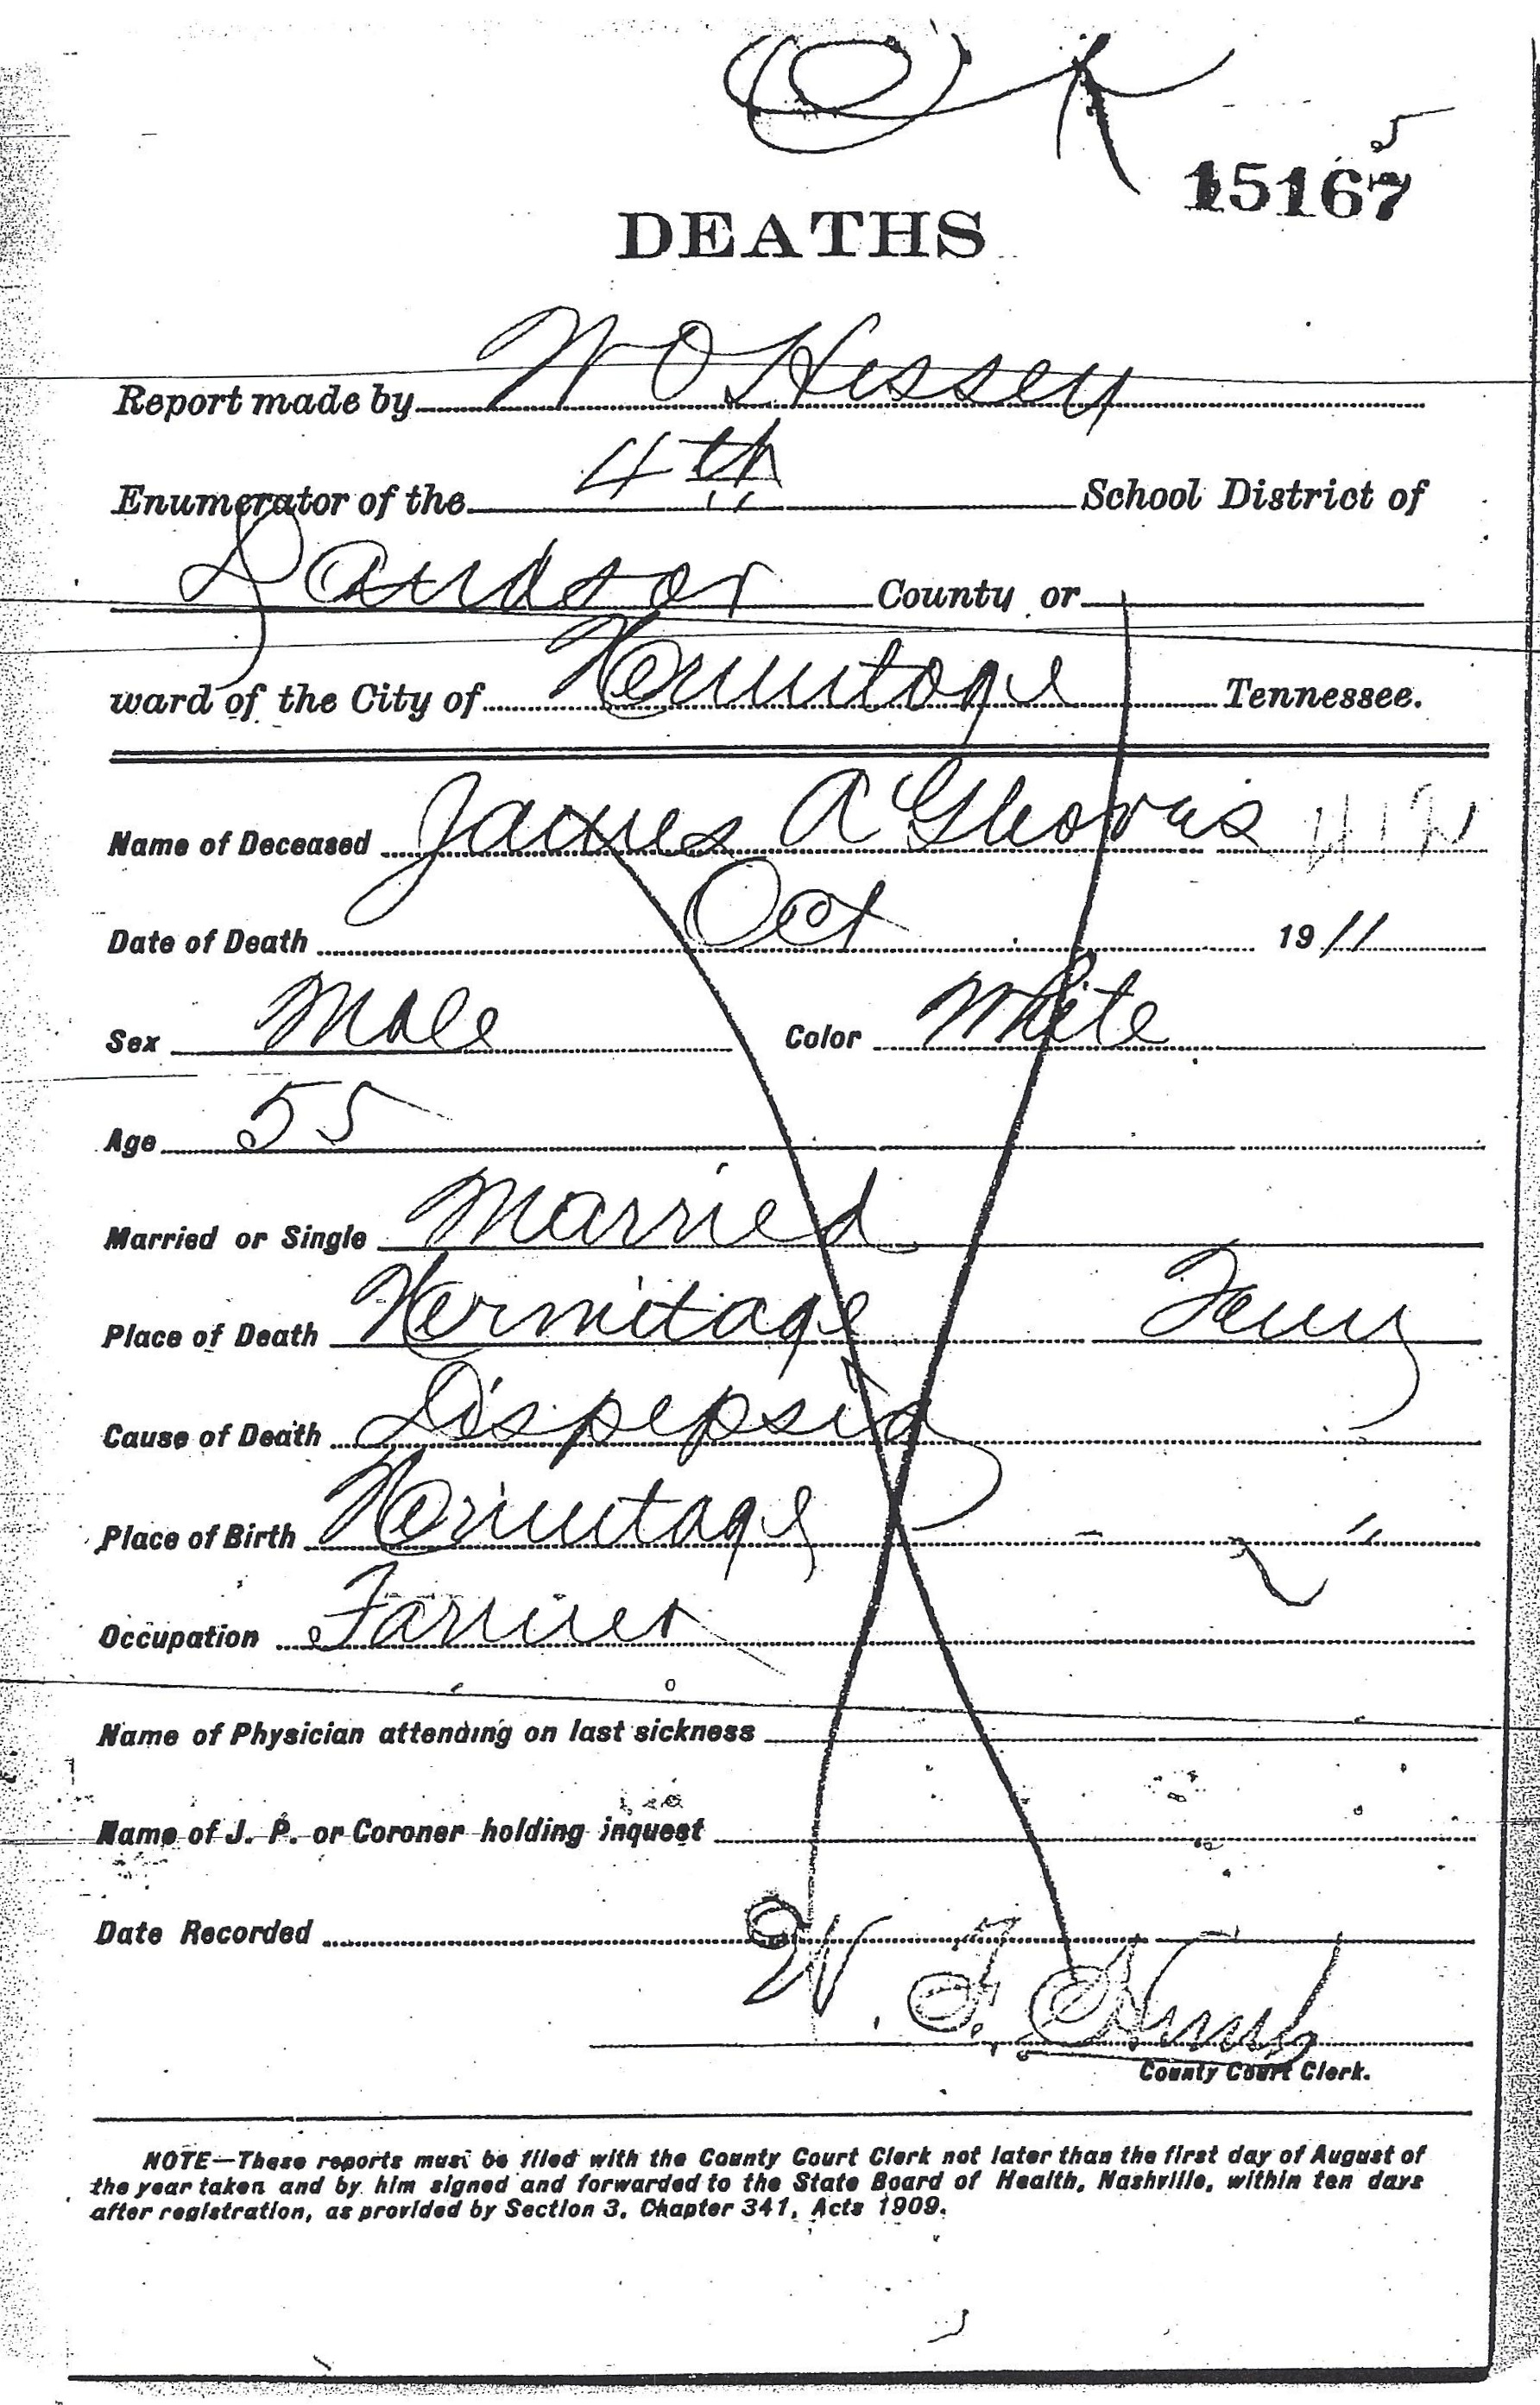 OK
5
15167
DEATHS
Report made by W O Hessey
Enumerator of the 4th School District of
County or
ward of the City of Hermitage Tennessee.
Name of Deceased James A
Date of Death Oct 1911
Sex Male Color White
Age 55
Married or Single Married
Place of Death Hermitage Tenn
Cause of Death Dispepsia
Place of Birth Hermitage "
Occupation Farmer
Name of Physician attending on last sickness
Name of J. P. or Coroner holding inquest
Date Recorded
W. F.
County Court Clerk.
NOTE—These reports must be filed with the County Court Clerk not later than the first day of August of
the year taken and by him signed and forwarded to the State Board of Health, Nashville, within ten days
after registration, as provided by Section 3, Chapter 341, Acts 1909.